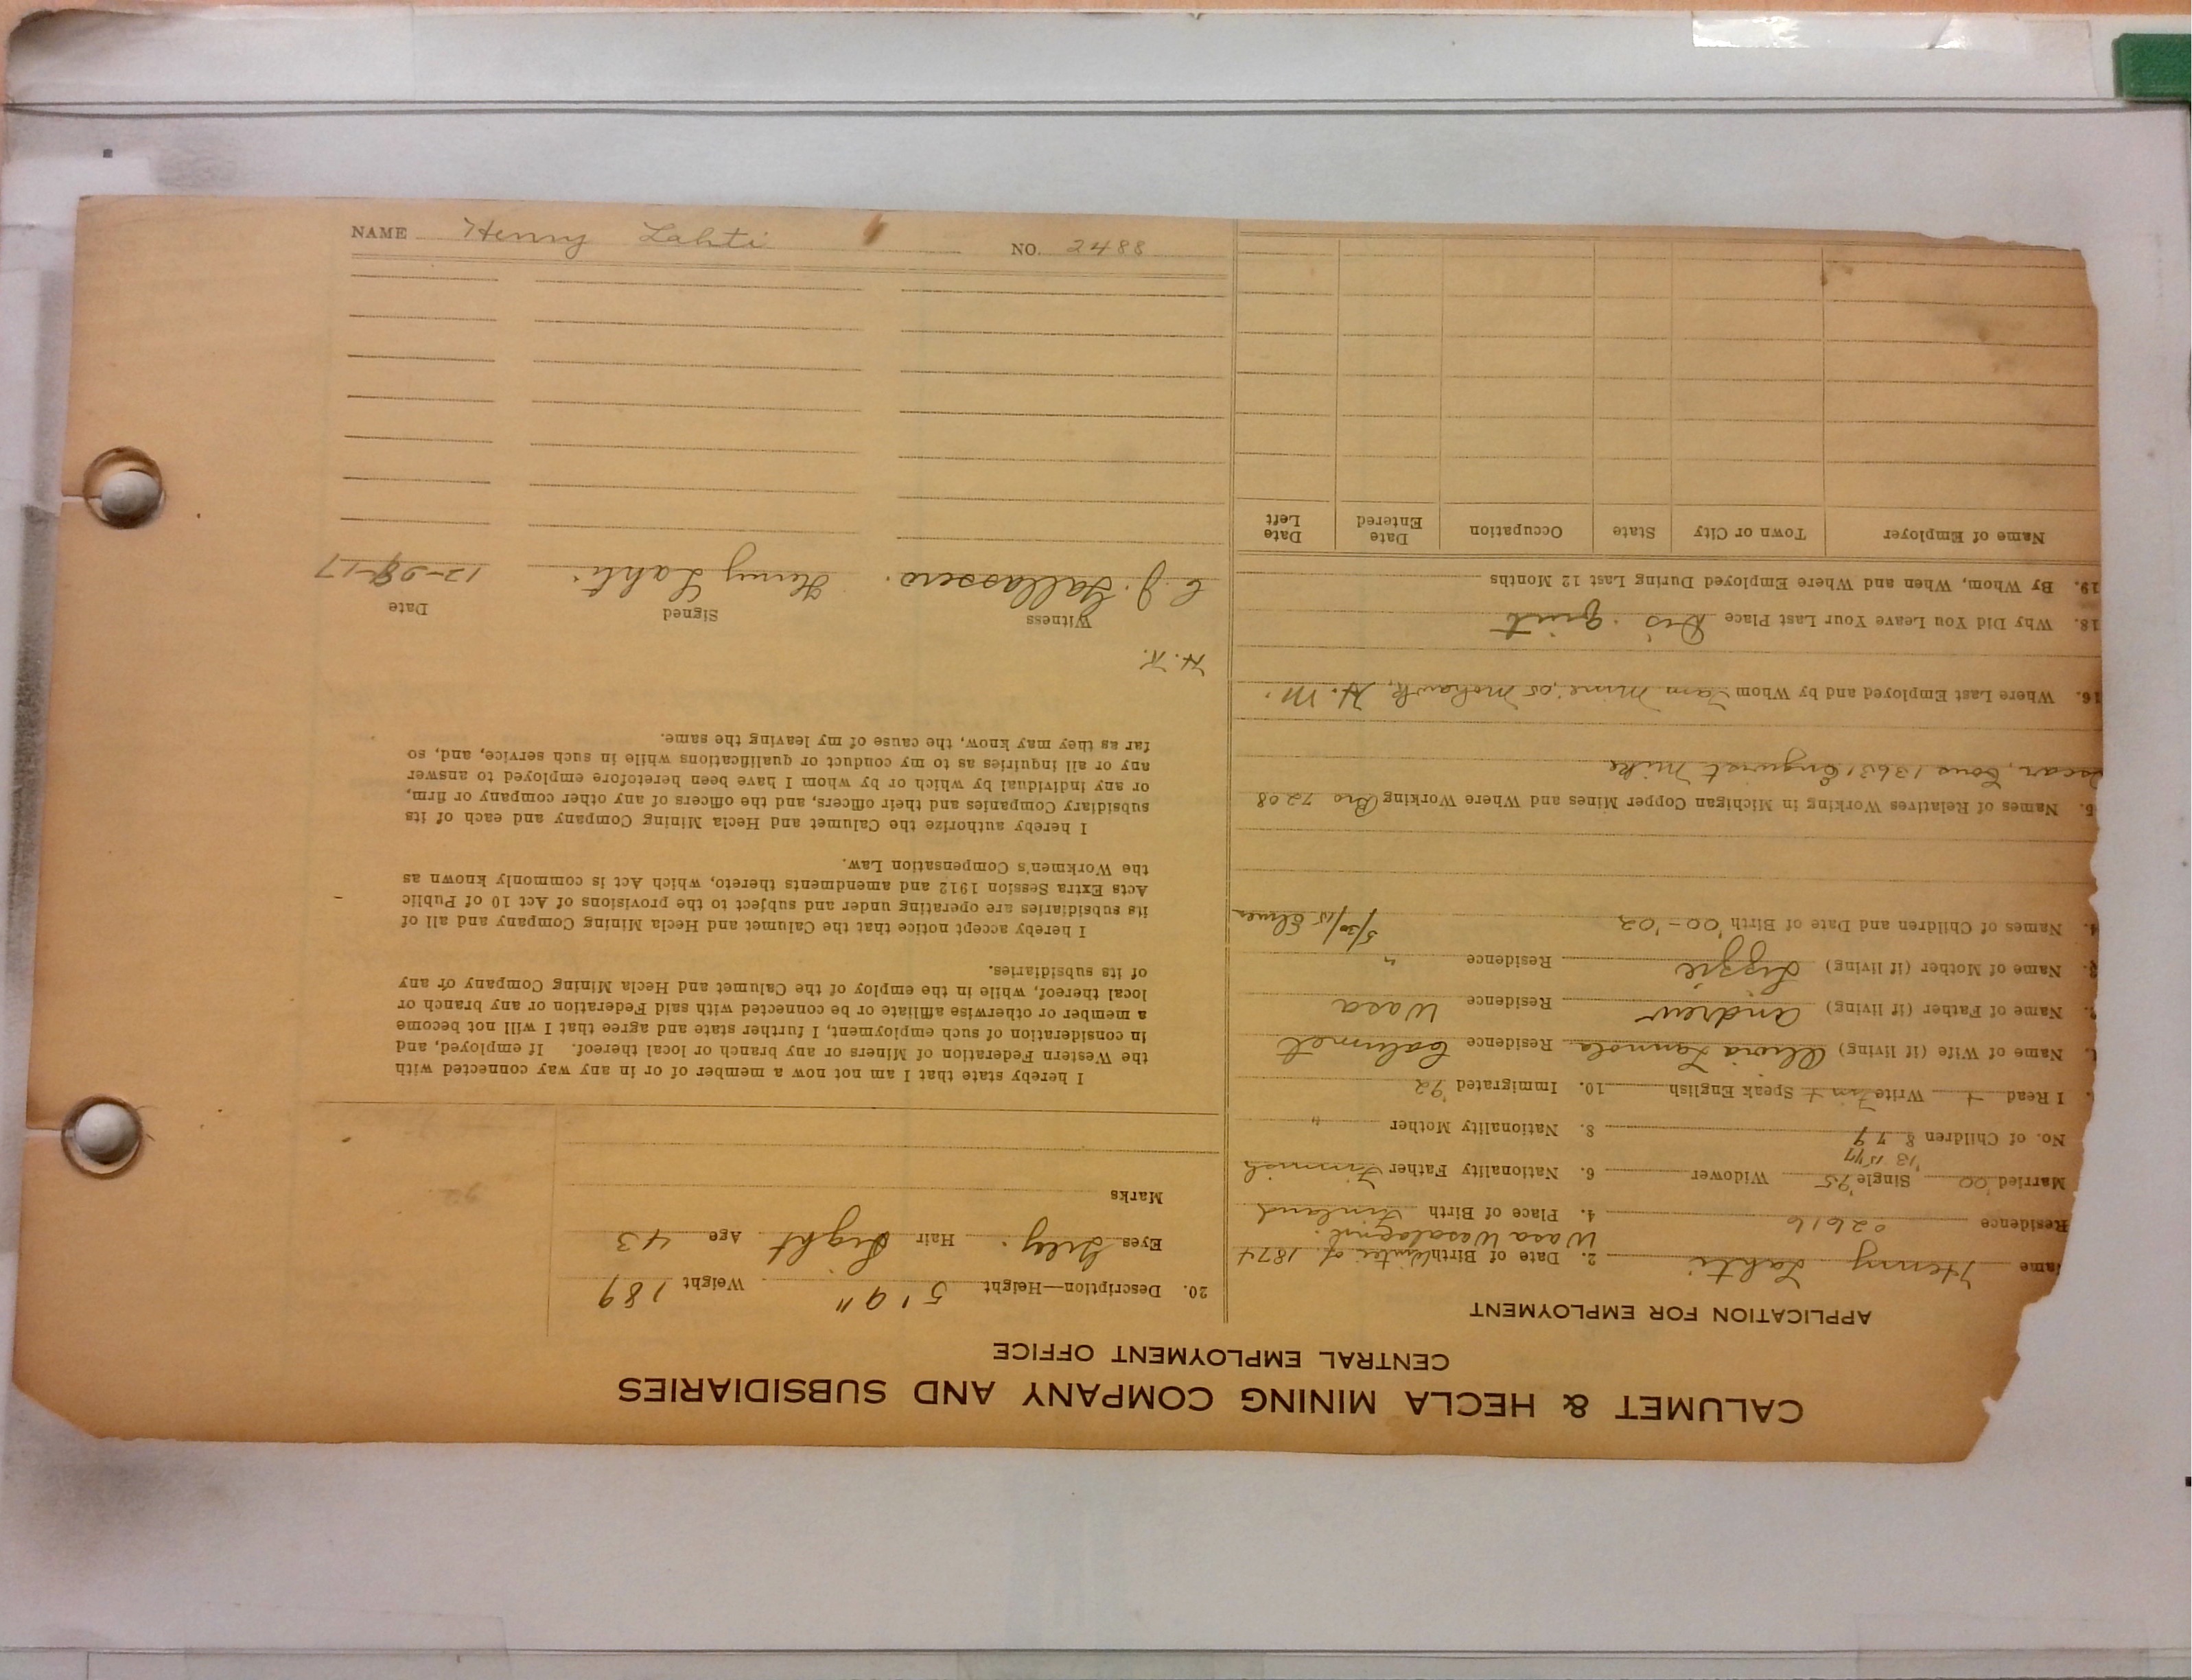 CALUMET & HECLA MINING COMPANY AND SUBSIDIARIES
CENTRAL EMPLOYMENT OFFICE
APPLICATION FOR EMPLOYMENT
ame Henny Lahti 2. Date of Birth Winter of 1874
Wasa Wasalagni
Residence 02616 4. Place of Birth Finland
Married '00 Single '95 Widower 6. Nationality Father Finnish
'13 15 '17
No. of Children 8 7 9 8. Nationality Mother "
I Read + Write Fin + Speak English 10. Immigrated '92
Name of Wife (if living) Residence Calumet
Name of Father (if living) Andrew Residence Wasa
Name of Mother (if living) Lizzie Residence "
4. Names of Children and Date of Birth '00-'02 5/30/15 Elmer
5. Names of Relatives Working in Michigan Copper Mines and Where Working Bro 7208
scar, 13631 Mike
16. Where Last Employed and by Whom Mine, as Mohawk, H. M.
18. Why Did You Leave Your Last Place Dis. quit
19. By Whom, When and Where Employed During Last 12 Months
Name of Employer Town or City State Occupation Date Entered Date Left
20. Description—Height 5' 9" Weight 189
Eyes Grey. Hair Light Age 43
Marks
I hereby state that I am not now a member of or in any way connected with
the Western Federation of Miners or any branch or local thereof. If employed, and
in consideration of such employment, I further state and agree that I will not become
a member or otherwise affiliate or be connected with said Federation or any branch or
local thereof, while in the employ of the Calumet and Hecla Mining Company or any
of its subsidiaries.
I hereby accept notice that the Calumet and Hecla Mining Company and all of
its subsidiaries are operating under and subject to the provisions of Act 10 of Public
Acts Extra Session 1912 and amendments thereto, which Act is commonly known as
the Workmen's Compensation Law.
I hereby authorize the Calumet and Hecla Mining Company and each of its
subsidiary Companies and their officers, and the officers of any other company or firm,
or any individual by which or by whom I have been heretofore employed to answer
any or all inquiries as to my conduct or qualifications while in such service, and, so
far as they may know, the cause of my leaving the same.
H. K.
Witness Signed Date
C. J. Gallassero. Henny Lahti. 12-28-17
NAME Henny Lahti NO. 2488